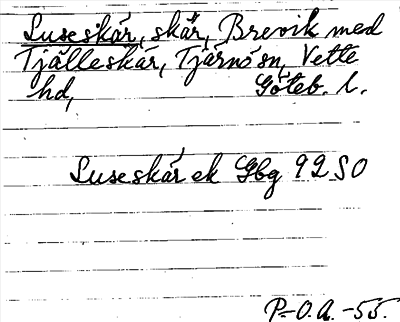 Luseskär, skär, Brevik med
Tjälleskär, Tjärnö sn, Vette
hd, Göteb. l.
Luseskär ek Gbg 92 SO
P.-O.A. -55.